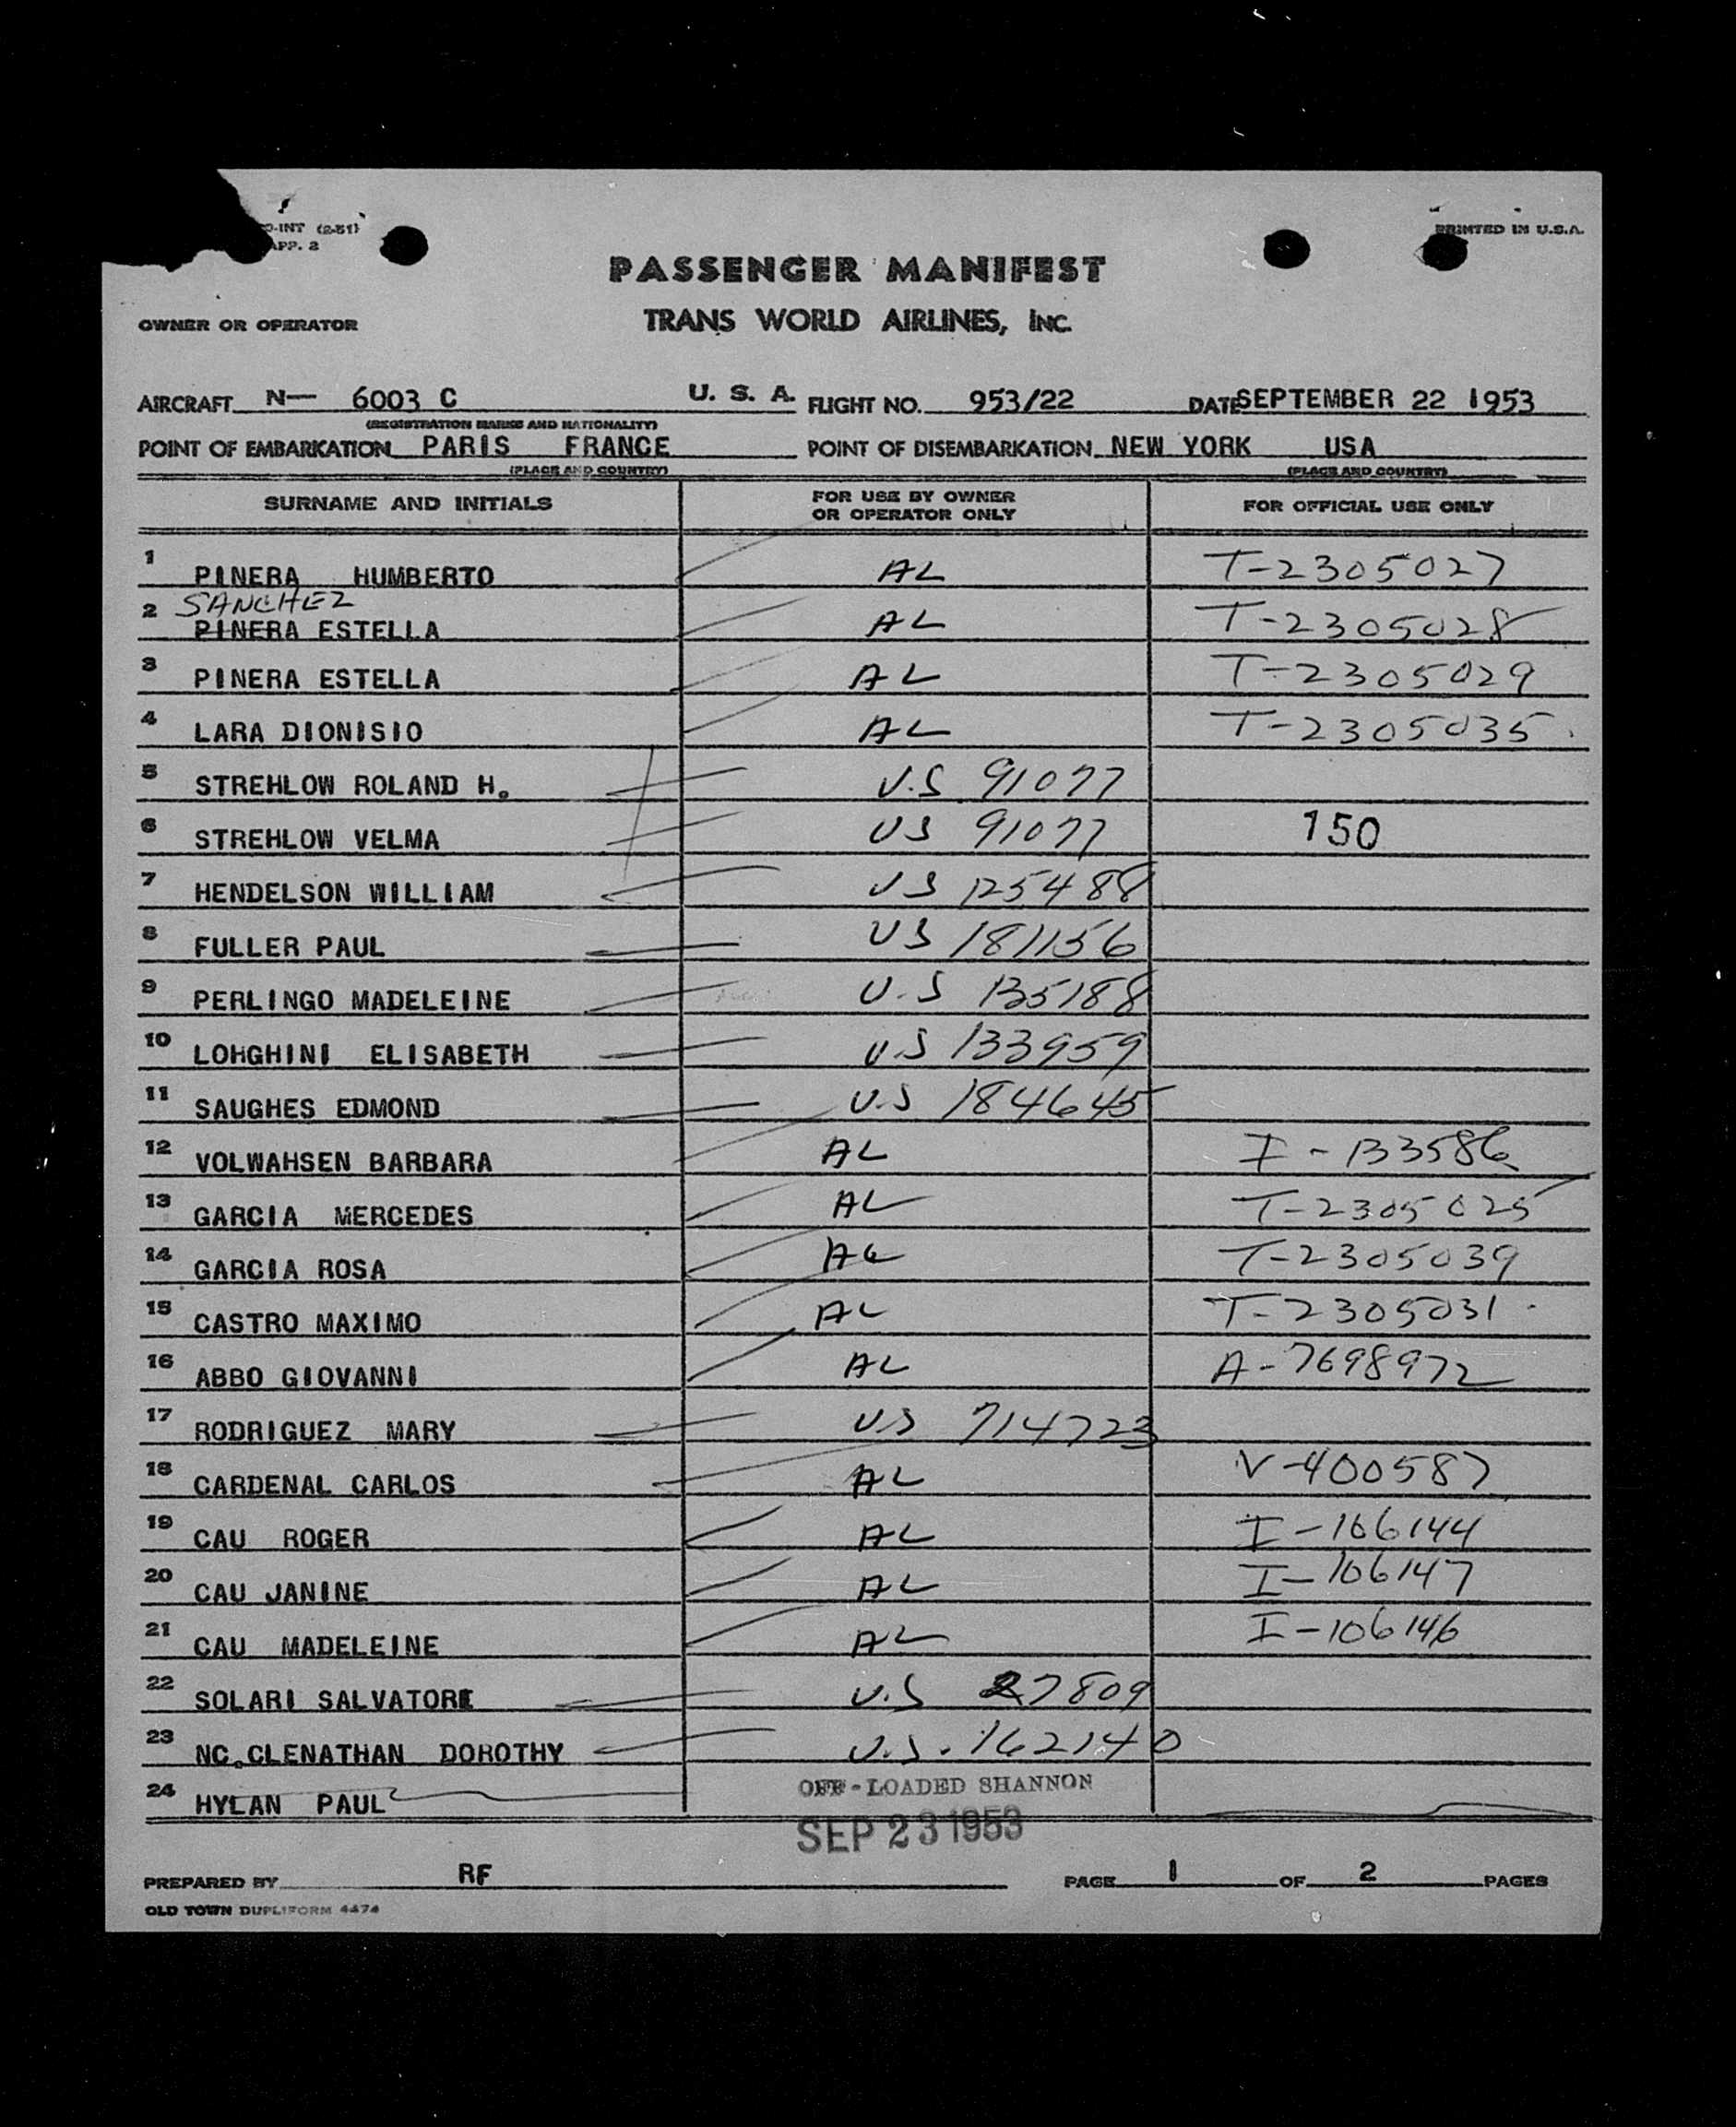 O-INT (2-51)
APP. 2
PRINTED IN U.S.A.
PASSENGER MANIFEST
OWNER OR OPERATOR TRANS WORLD AIRLINES, INC.
AIRCRAFT N— 6003 C U. S. A. FLIGHT NO. 953/22 DATE SEPTEMBER 22 1953
(REGISTRATION MARKS AND NATIONALITY)
POINT OF EMBARKATION PARIS FRANCE POINT OF DISEMBARKATION NEW YORK USA
(PLACE AND COUNTRY) (PLACE AND COUNTRY)
SURNAME AND INITIALS FOR USE BY OWNER OR OPERATOR ONLY FOR OFFICIAL USE ONLY
1 PINERA HUMBERTO AL T-2305027
SANCHEZ
2 PINERA ESTELLA AL T-2305028
3 PINERA ESTELLA AL T-2305029
4 LARA DIONISIO AL T-2305035
5 STREHLOW ROLAND H. U.S 91077
6 STREHLOW VELMA US 91077 150
7 HENDELSON WILLIAM US 125488
8 FULLER PAUL US 181156
9 PERLINGO MADELEINE U.S 135188
10 LOHGHINI ELISABETH U.S 133959
11 SAUGHES EDMOND U.S 184645
12 VOLWAHSEN BARBARA AL I-133586
13 GARCIA MERCEDES AL T-2305025
14 GARCIA ROSA AL T-2305039
15 CASTRO MAXIMO AL T-2305031
16 ABBO GIOVANNI AL A-7698972
17 RODRIGUEZ MARY US 714723
18 CARDENAL CARLOS AL V-400587
19 CAU ROGER AL I-106144
20 CAU JANINE AL I-106147
21 CAU MADELEINE AL I-106146
22 SOLARI SALVATORE U.S 27809
23 NC.CLENATHAN DOROTHY U.S. 162140
24 HYLAN PAUL OFF-LOADED SHANNON
SEP 23 1953
PREPARED BY RF PAGE 1 OF 2 PAGES
OLD TOWN DUPLIFORM 4474